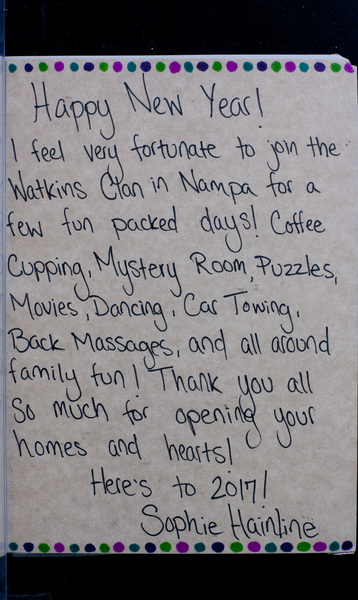 Happy New Year!
I feel very fortunate to join the
Watkins Clan in Nampa for a
few fun packed days! Coffee
Cupping, Mystery Room, Puzzles,
Movies, Dancing, Car Towing,
Back Massages, and all around
family fun! Thank you all
So much for opening your
homes and hearts!
Here's to 2017!
Sophie Hainline